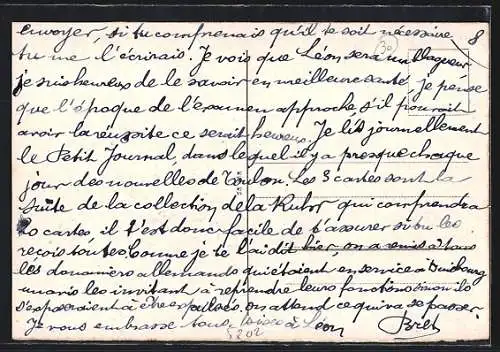 envoyer, si tu comprenais qu'il te soit nécessaire
30 8
tu me l'écrirais. Je vois que Léon, sera un blagueur
je suis heureux de le savoir en meilleure santé, je pense
que l'époque de l'examen approche s'il pouvait
avoir la réussite ce serait heureux. Je lis journellement
le Petit Journal, dans lequel il y a presque chaque
jour des nouvelles de Toulon. Les 3 cartes sont la
suite de la collection de la Ruhr qui comprendra
10 cartes, il t'est donc facile de t'assurer si tu les
reçois toutes. Comme je te l'ai dit hier, on a remis à tous
les douaniers allemands qui étaient en service à Duisbourg
un avis les invitant à reprendre leurs fonctions sinon ils
s'exposaient à être expulsés. on attend ce qui va se passer.
Je vous embrasse tous, à Léon Bret
5202